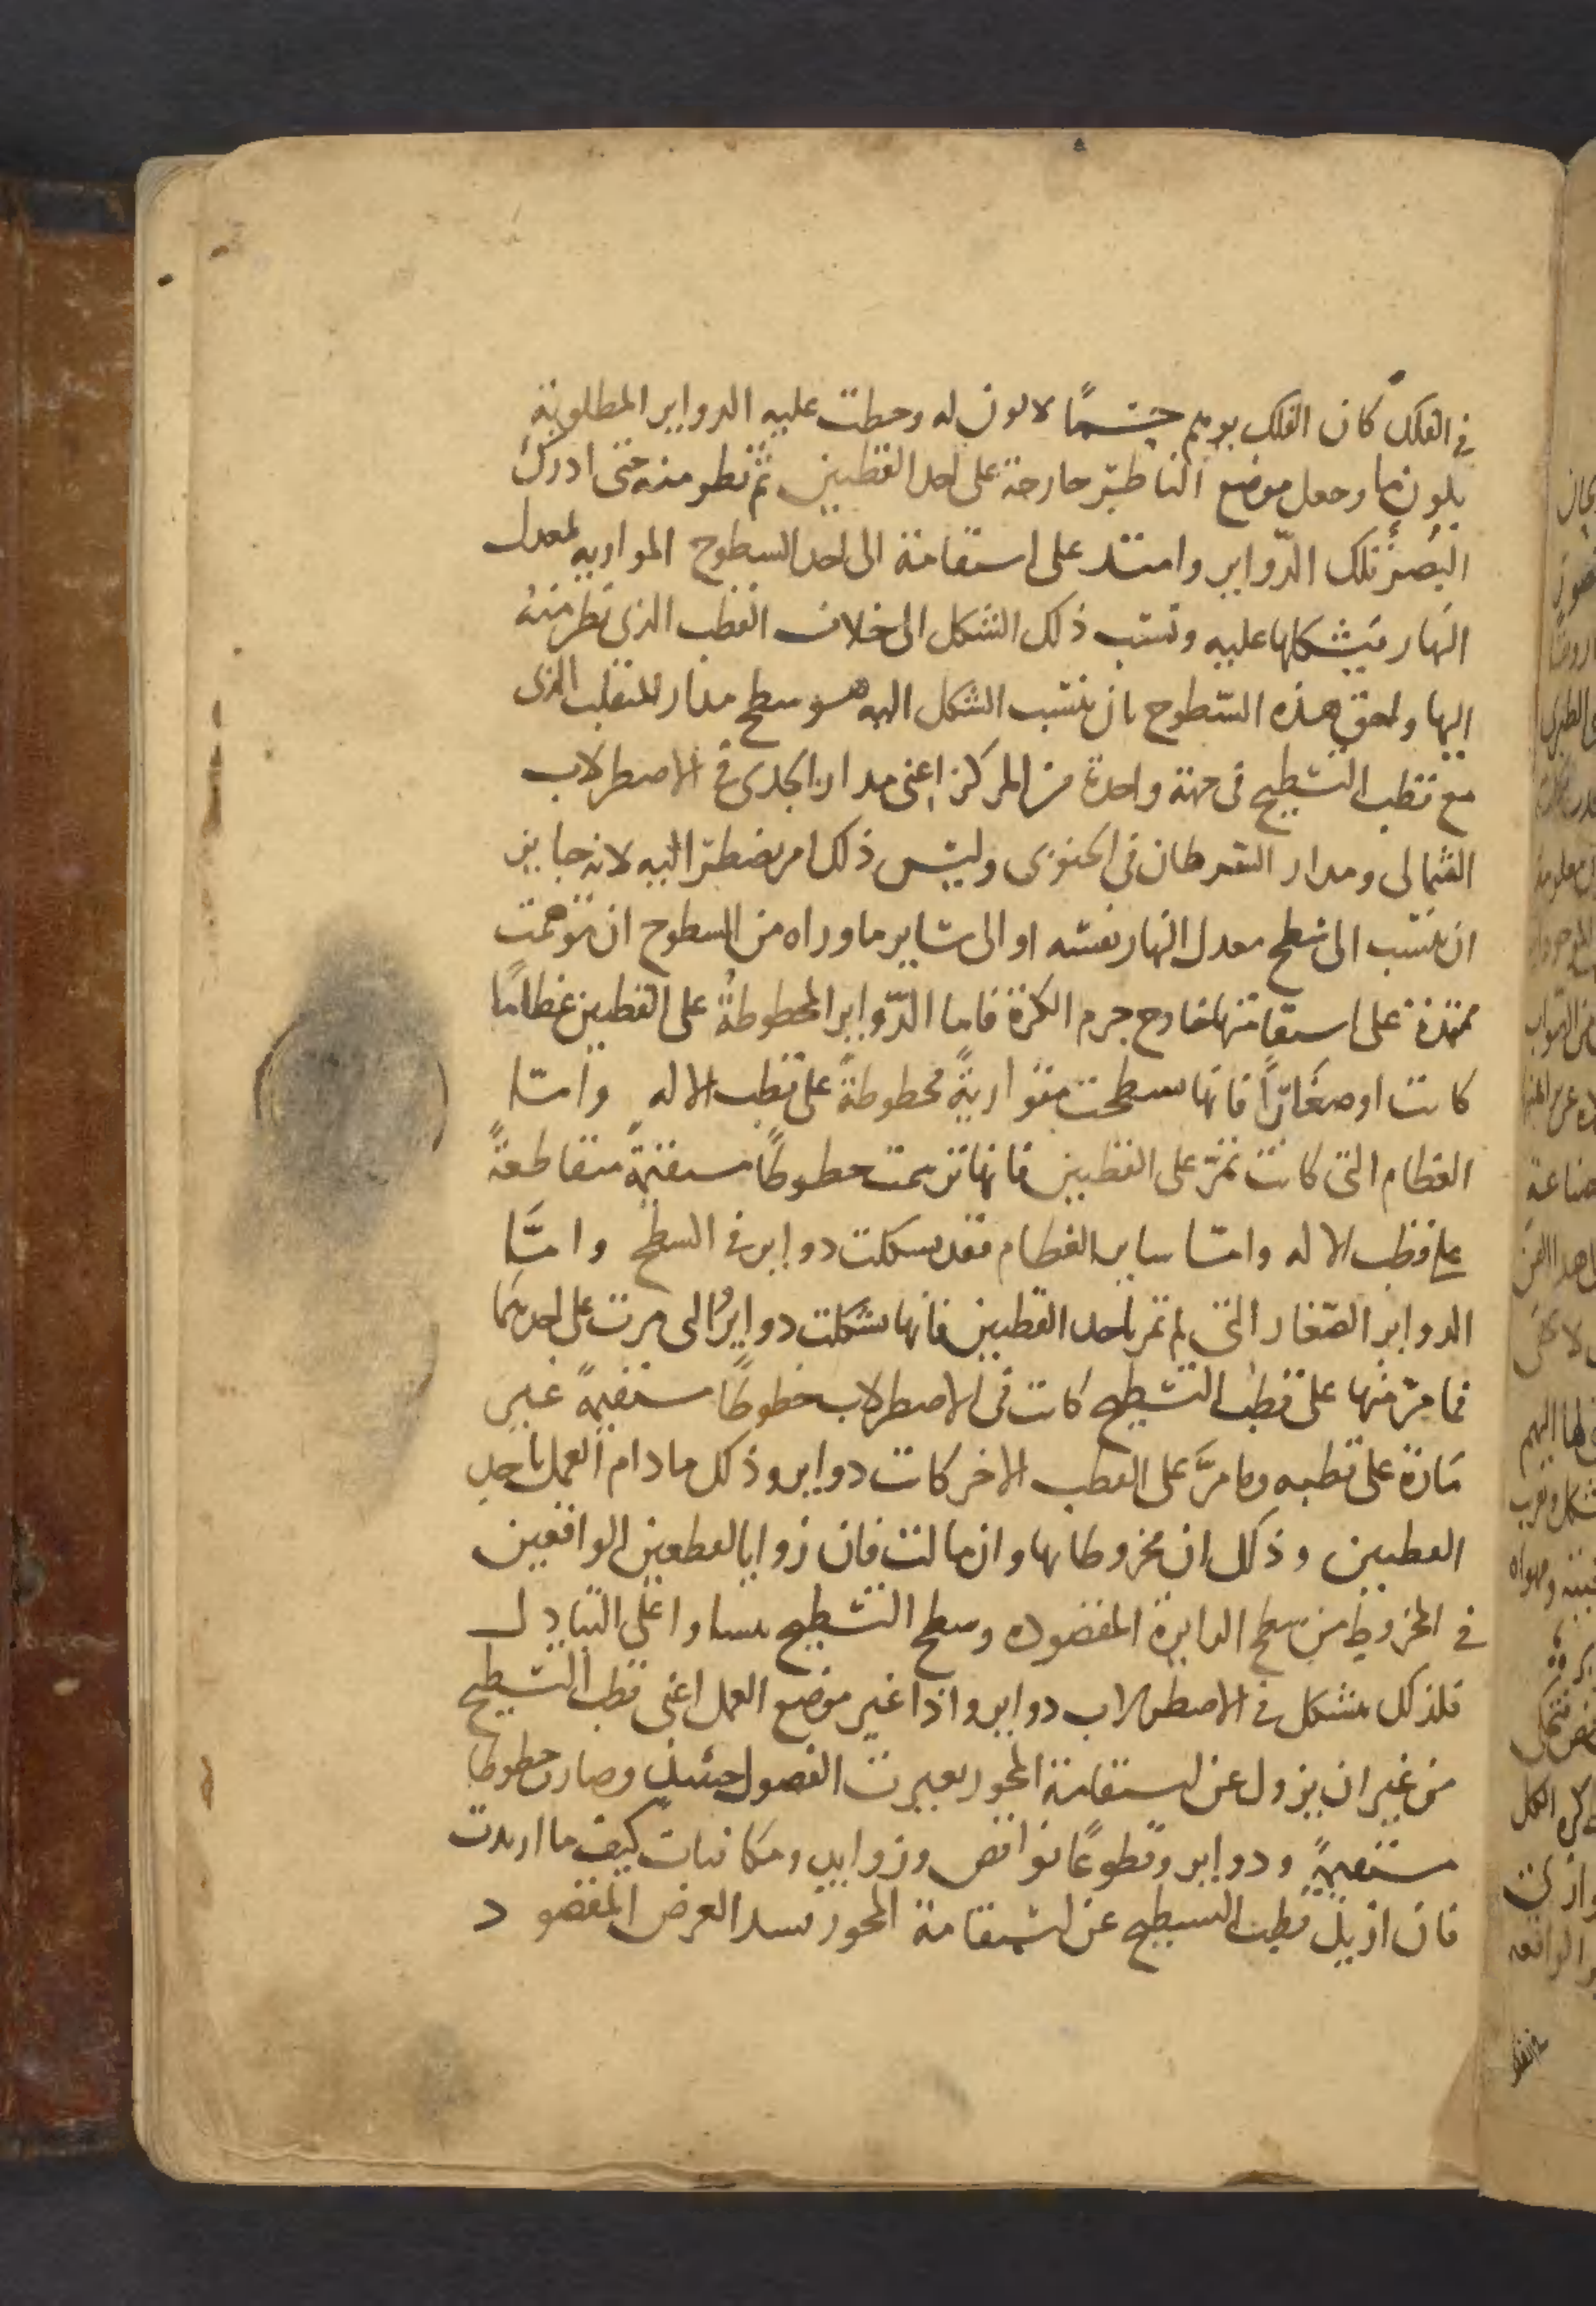 في الفلك كان الفلك بوهم جسما لا لون له وحطت عليه الدواير المطلوبة
بلون ما وجعل موضع الناظر خارجة على احد القطبين ثم نظر منه حتى ادرك
البصر تلك الدواير وامتد على استقامة الى احد السطوح الموازية لمعدل
النهار فيشكلها عليه ونسب ذلك الشكل الى خلاف القطب الذى نظر منه
اليها ولحق هذه السطوح بان ينسب الشكل اليه هو سطح مدار المنقلب الذى
مع قطب التسطيح في جهة واحدة من المركز اعنى مدار الجدى في الاصطرلاب
الشمالى ومدار السرطان في الجنوبى وليس ذلك امر يضطر اليه لانه جايز
ان ينسب الى سطح معدل النهار نفسه او الى ساير ما وراه من السطوح ان توهمت
ممتدة على استقامتها لخارج جرم الكرة فاما الدواير المخطوطة على القطبين عظاما
كانت او صغارا فانها سطحت متوازية مخطوطة على قطب الاله واما
العظام التى كانت تمر على القطبين فانها ترسمت خطوطا مستقيمة متقاطعة
على قطب الاله واما ساير العظام فقد يسكلت دواير في السطح واما
الدواير الصغار التى لم تمر باحد القطبين فانها تشكلت دواير والى مرت على احدهما
فما مر منها على قطب التسطيح كانت في الاصطرلاب خطوطا مستقيمة غير
مارة على قطبه وما مر على القطب الاخر كانت دواير وذلك ما دام العمل باحد
القطبين وذلك ان مخروطاتها وان مالت فان زوايا القطعين الواقعين
في المخروط من سطح الدايرة المقصوده وسطح التسطيح تتساوا على التبادل
فلذلك يتشكل في الاصطرلاب دواير واذا غير موضع العمل اعنى قطب التسطيح
من غير ان يزول عن استقامة المحور تغيرت الفصول حينئذ وصارت خطوطا
مستقيمة ودواير وقطوعا نواقص وزوايد ومكافيات كيف ما اريدت
فان ازيل قطب التسطيح عن استقامة المحور العرض المقصود